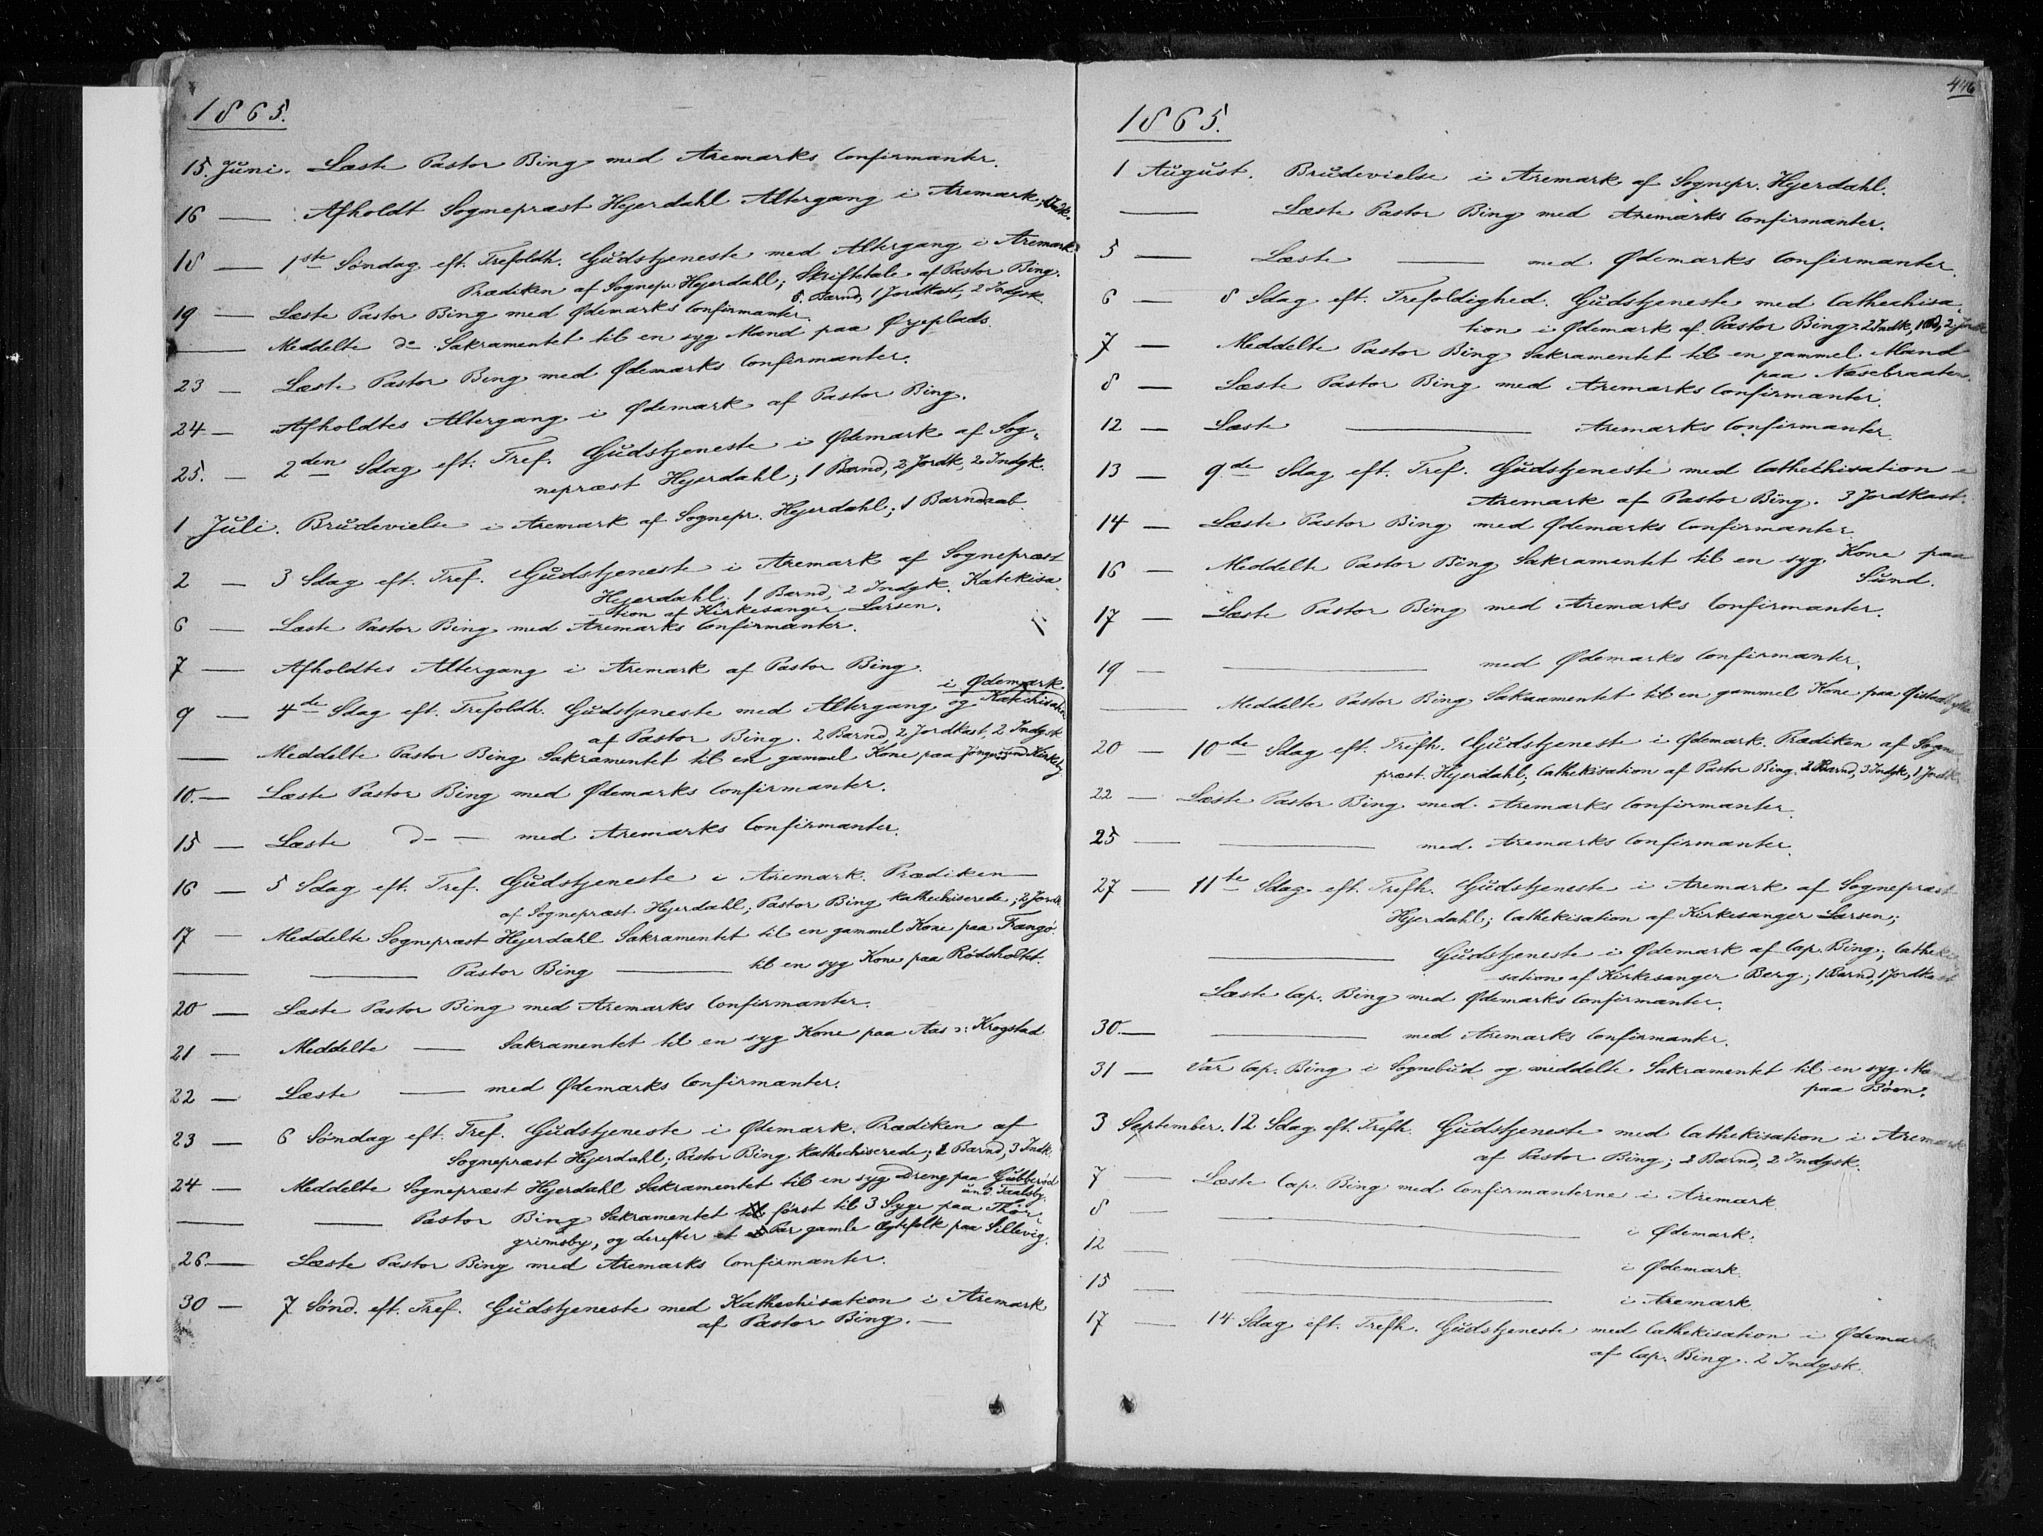 1865.
15. Juni. Læste Pastor Bing med Aremarks Confirmanter.
16 — Afholdt Sognepræst Hjerdahl Altergang i Aremark,
18 — 1ste Søndag eft. Trefoldh. Gudstjeneste med Altergang i Aremark
Prædiken af Sognepr Hjerdahl; Skriftetale af Pastor Bing.
5. Barnd, 1 Jordkast, 2 Indgk.
19 — Læste Pastor Bing med Ødemarks Confirmanter.
— Meddelte do Sakramentet til en syg Mand paa Ørjeplads.
23 — Læste Pastor Bing med Ødemarks Confirmanter.
24 — Afholdtes Altergang i Ødemark af Pastor Bing.
25. — 2den Sdag eft. Tref. Gudstjeneste i Ødemark af Sog-
nepræst Hjerdahl; 1 Barnd, 2 Jordk, 2 Indgk.
1 Juli. Brudevielse i Aremark af Sognepr. Hjerdahl; 1 Barndaab.
2 — 3 Sdag eft. Tref. Gudstjeneste i Aremark af Sognepræst
Hjerdahl; 1 Barnd, 2 Indgk. Katekisa
tion af Kirkesanger Larsen.
6 — Læste Pastor Bing med Aremarks Confirmanter.
7 — Afholdtes Altergang i Aremark af Pastor Bing.
i Ødemark
9 — 4de Sdag eft. Trefoldh. Gudstjeneste med Altergang og Katechisation
af Pastor Bing. 2 Barnd, 2 Jordkast, 2 Indgsk.
— Meddelte Pastor Bing Sakramentet til en gammel Kone paa
10. — Læste Pastor Bing med Ødemarks Confirmanter.
15 — Læste d— — med Aremarks Confirmanter.
16 — 5 Sdag eft. Tref. Gudstjeneste i Aremark. Prædiken
af Sognepræst Hjerdahl; Pastor Bing kathechiserede; 2 Jordk
17 — Meddelte Sognepræst Hjerdahl Sakramentet til en gammel Kone paa Fangø.
— — Pastor Bing — til en syg Kone paa Rødsholtet.
20 — Læste Pastor Bing med Aremarks Confirmanter.
21 — Meddelte — Sakramentet til en syg Kone paa Aas i Krogstad
22 — Læste — med Ødemarks Confirmanter.
23 — 6 Søndag eft. Tref. Gudstjeneste i Ødemark. Prædiken af
Sognepræst Hjerdahl; Pastor Bing kathechiserede; 2 Barnd, 3 Indk.
24 — Meddelte Sognepræst Hjerdahl Sakramentet til en syg Dreng paa Gubberød
und. Taalsby.
— — Pastor Bing Sakramentet først til 3 Syge paa Thor-
grimsby, og derefter et Par gamle Ægtefolk paa Sillevig.
26. — Læste Pastor Bing med Aremarks Confirmanter.
30 — 7 Sønd. eft. Tref. Gudstjeneste med Kathechisation i Aremark
af Pastor Bing. —
446
1865.
1 August. Brudevielse i Aremark af Sognepr. Hjerdahl.
— Læste Pastor Bing med Aremarks Confirmanter.
5 — Læste — med Ødemarks Confirmanter.
6 — 8 Sdag eft. Trefoldighed. Gudstjeneste med Cathechisa-
tion i Ødemark af Pastor Bing. 2 Indk, 1 Bd, 2 Jordk
7 — Meddelte Pastor Bing Sakramentet til en gammel Mand
paa Næsebraaten.
8 — Læste Pastor Bing med Aremarks Confirmanter.
12 — Læste — Aremarks Confirmanter.
13 — 9de Sdag eft. Tref. Gudstjeneste med Cathethisation i
Aremark af Pastor Bing. 3 Jordkast.
14 — Læste Pastor Bing med Ødemarks Confirmanter
16 — Meddelte Pastor Bing Sakramentet til en syg Kone paa
Sund.
17 — Læste Pastor Bing med Aremarks Confirmanter.
19 — — med Ødemarks Confirmanter.
— Meddelte Pastor Bing Sakramentet til en gammel Kone paa
20 — 10de Sdag eft. Trefh. Gudstjeneste i Ødemark. Prædiken af Sogne
præst Hjerdahl; Cathekisation af Pastor Bing. 2 Barnd, 3 Indgk, 1 Jordk.
22 — Læste Pastor Bing med Aremarks Confirmanter.
25 — — med Aremarks Confirmanter.
27 — 11te Sdag eft. Trefh. Gudstjeneste i Aremark af Sognepræst
Hjerdahl; Cathekisation af Kirkesanger Larsen;
— Gudstjeneste i Ødemark af Cap. Bing; Catheki-
sation af Kirkesanger Berg; 1 Barnd, 1 Jordkast
Læste Cap. Bing med Ødemarks Confirmanter.
30. — — med Aremarks Confirmanter.
31 — Var Cap. Bing i Sognebud og meddelte Sakramentet til en syg Mand
paa Bøen.
3 September. 12 Sdag eft. Trefh. Gudstjeneste med Cathekisation i Aremark
af Pastor Bing; 2 Barnd, 2 Indgsk.
7 — Læste Cap. Bing med Confirmanterne i Aremark
8 — — i Ødemark.
12 — — i Ødemark.
15 — — i Aremark
17 — 14 Sdag eft. Trefh. Gudstjeneste med Cathekisation i Ødemark
af Cap. Bing. 2 Indgsk.